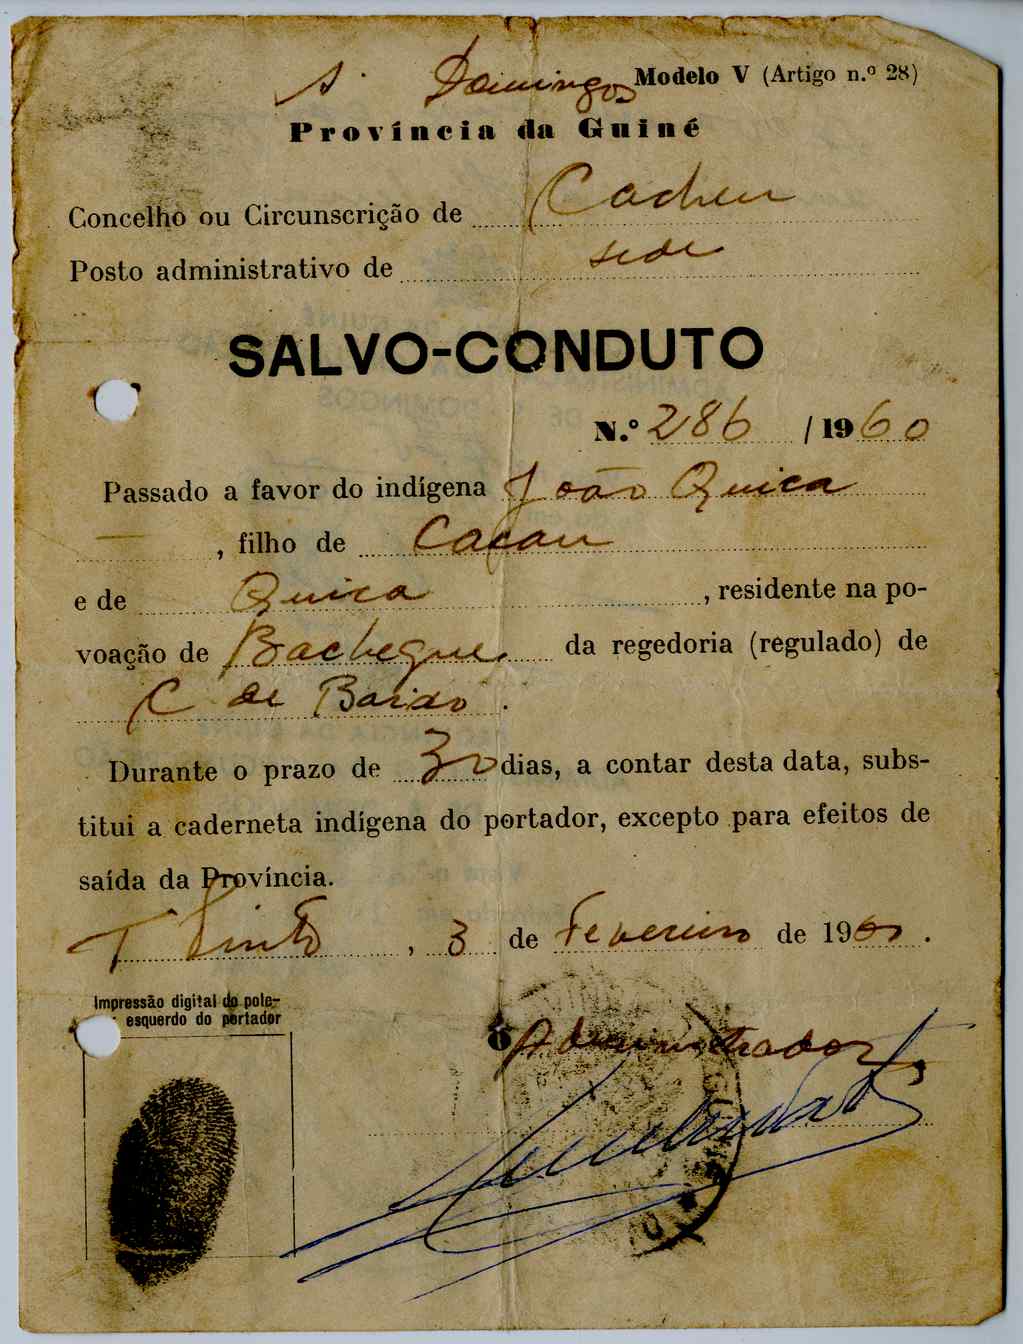 S. Domingos
Modelo V (Artigo n.º 28)
Província da Guiné
Concelho ou Circunscrição de Cacheu
Posto administrativo de sede
SALVO-CONDUTO
N.º 286 / 1960
Passado a favor do indígena João Quica
, filho de Caçau
e de Quica , residente na po-
voação de Bachegue da regedoria (regulado) de
C. de Baixo .
Durante o prazo de 30 dias, a contar desta data, subs-
titui a caderneta indígena do portador, excepto para efeitos de
saída da Província.
T. Pinto , 3 de Fevereiro de 1960 .
Impressão digital do pole-
esquerdo do portador
O Administrador,